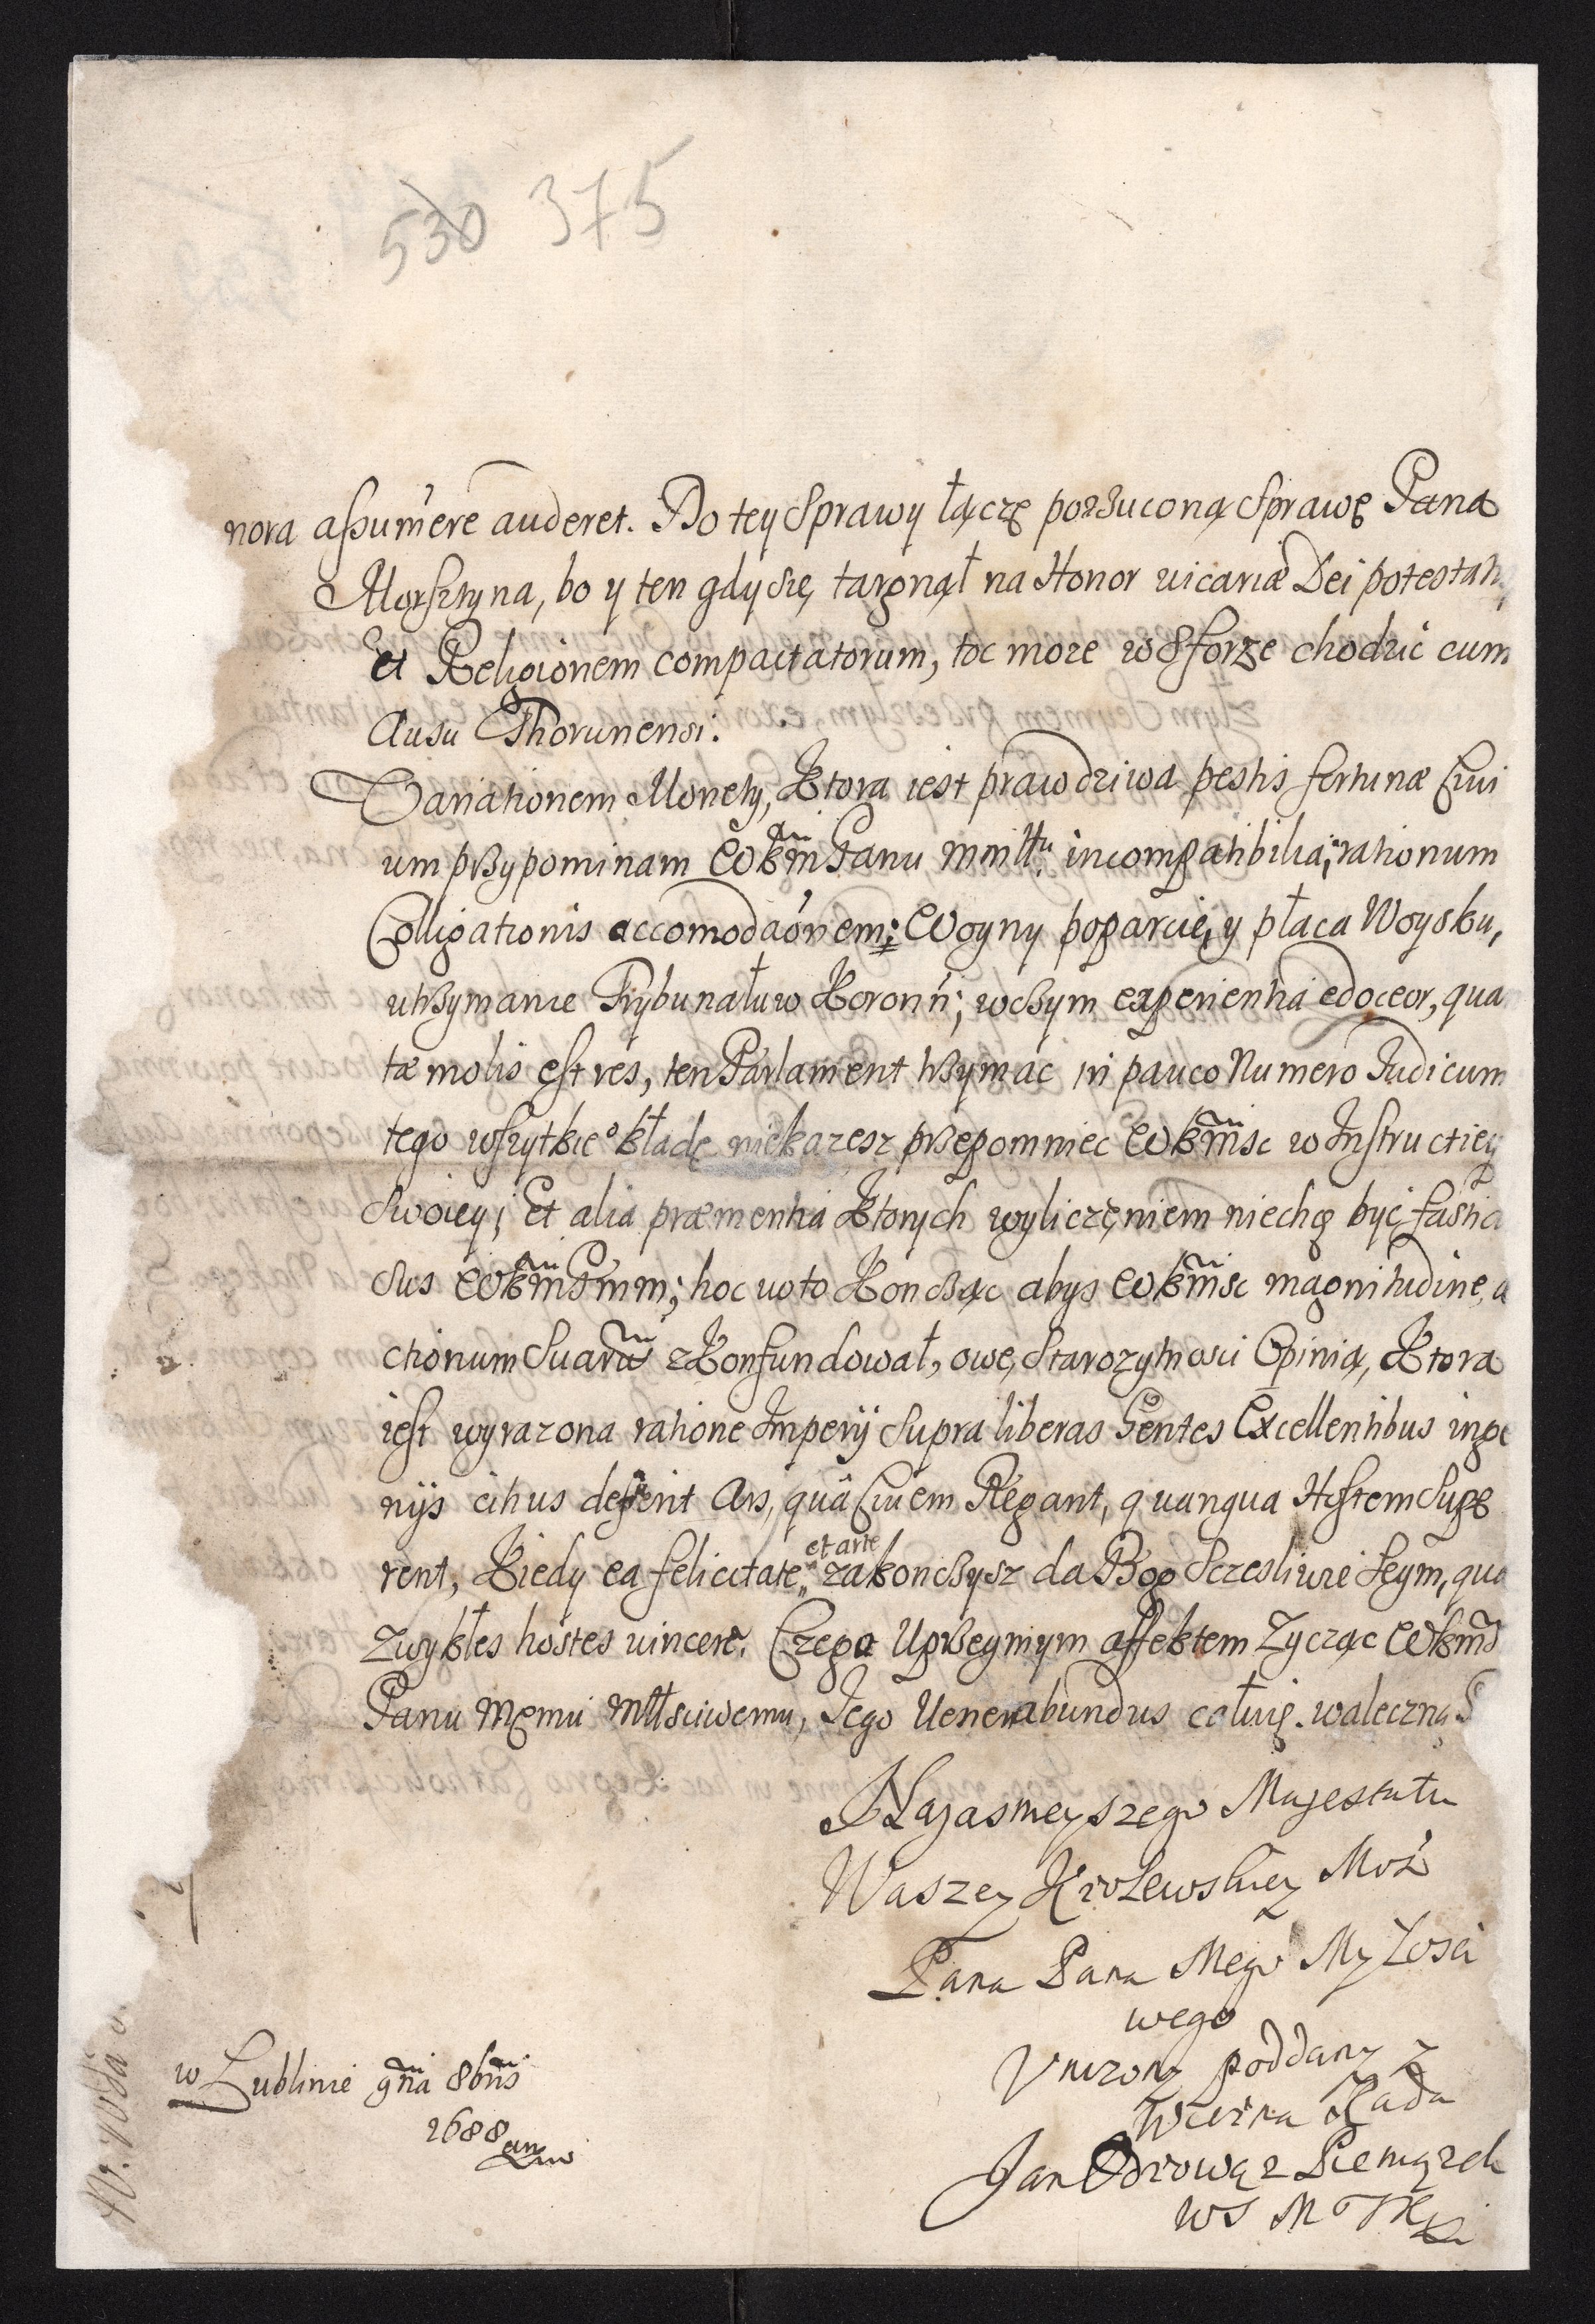 530 375
nora assumere auderet. Do tey Sprawy łączę porzuconą Sprawę Pana
Morsztyna, bo y ten gdy się targnął na Honor vicariæ Dei potestatis
et Religionem compactatorum, toc moze w Sforze chodzić cum
Ausu Thorunensi.
Variationem Monety, Ktora iest prawdziwa pestis fortunæ Civi
um przypominam WKm Panu mmłłu. incompatibilia, rationum
Colligationis accomodaónem; Woyny poparcie, y płaca Woysku,
utrzymanie Trybunałuw Koronń; w czym experientia edoceor, qua
tæ molis est res, ten Parlament trzymać in pauco Numero Judicum
tego wszytkie° kładę niekazesz przepomniec WKmsc w Instructiey
Swoiey; Et alia præmentia Ktorych wyliczęniem niechcę być fastid
sus WKmsPmm; hoc voto Koncząc abys WKmsc magnitudine, a
ctionum Suarū zKonfundował, owę, Starozytnosci Opinią, Ktora
iest wyrazona ratione Imperij Supra liberas Gentes Excellentibus inge
nijs citius deferit Ars, quâ Civem Regant, quanqua Hostem Supe
rent, Kiedy ea felicitate, et arte zakonczysz da Bog Sczesliwie Seym, qua
zwykłes hostes vincere. Czego Uprzeymym affektem Zycząc WKms
Panu Memu Młłsciwemu, Jego Venerabundus całuię waleczną
Nayasnieyszego Majestatu
Waszey Krolewskiey Mosi
Pana Pana Mego Myłosci
wego
Vnizony poddany y
Wierna Rada
Jan Odrowąz Pieniązek
WS
w Lublinie 9na 8bris
1688